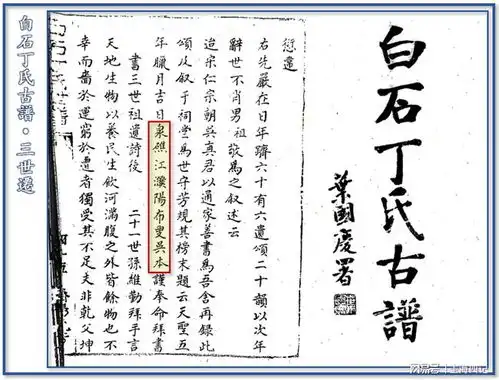 白石丁氏古譜·三世遷
白石丁氏古譜
葉國慶署
右先嚴在日年躋六十有六遺頌二十韻以次年
辭世不肖男祖敬為之叙述云
迨宋仁宗朝吳真君以通家善書為吾舍再録此
頌及叙于祠堂為世守芳規其榜末題云天聖五
年臘月吉日泉礁江濮陽布叟吳本謹奉命拜書
書三世祖遺詩後 二十一世孫維勤拜手言
天地生物以養民生飲河滿腹之外皆餘物也不
幸而嗇於運窮於遭者獨受其不足夫非乾父坤